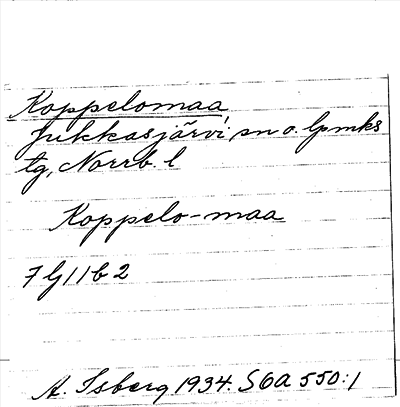 Koppelomaa
Jukkasjärvi sn o. lpmks
tg, Norrb. l
Koppelo-maa
7 G 11 b 2
A. Isberg 1934. SOA 550:1